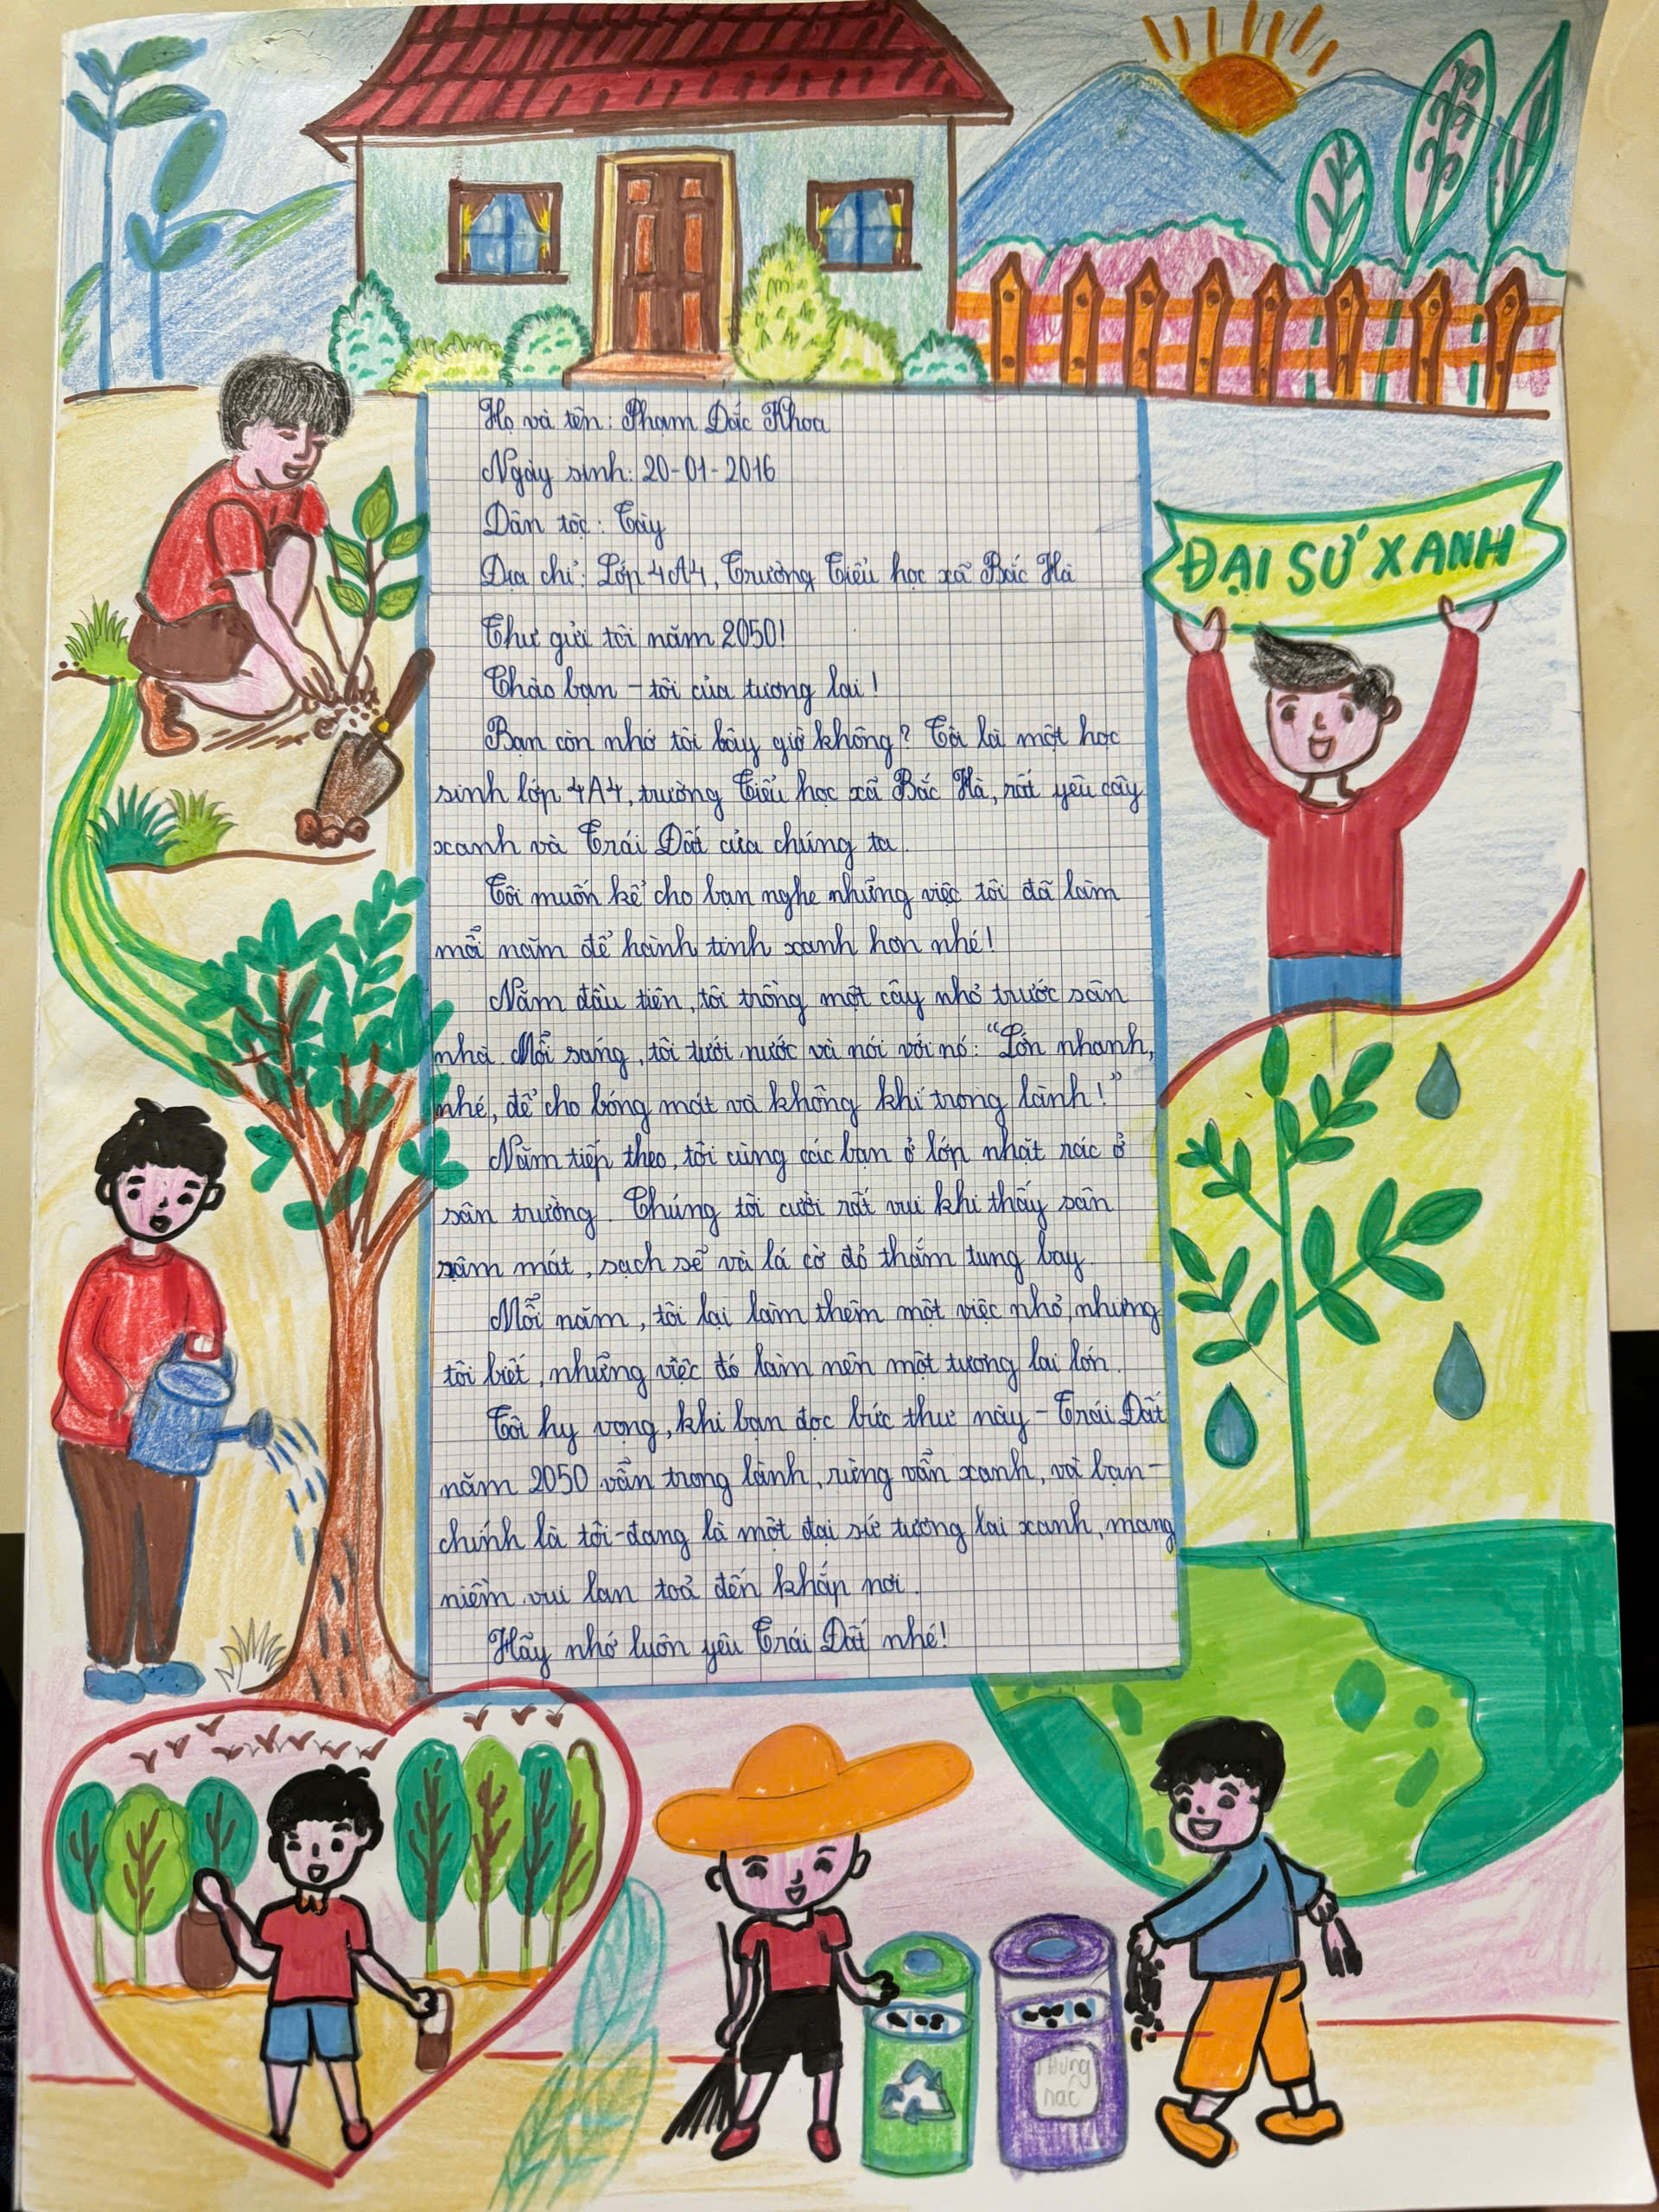 Họ và tên: Phạm Đắc Khoa
Ngày sinh: 20-01-2016
Dân tộc: Tày
Địa chỉ: Lớp 4A4, Trường Tiểu học xã Bắc Hà
Thư gửi tôi năm 2050!
Chào bạn - tôi của tương lai!
Bạn còn nhớ tôi bây giờ không? Tôi là một học
sinh lớp 4A4, trường Tiểu học xã Bắc Hà, rất yêu cây
xanh và Trái Đất của chúng ta.
Tôi muốn kể cho bạn nghe những việc tôi đã làm
mỗi năm để hành tinh xanh hơn nhé!
Năm đầu tiên, tôi trồng một cây nhỏ trước sân
nhà. Mỗi sáng, tôi tưới nước và nói với nó: "Lớn nhanh,
nhé, để cho bóng mát và không khí trong lành!"
Năm tiếp theo, tôi cùng các bạn ở lớp nhặt rác ở
sân trường. Chúng tôi cười rất vui khi thấy sân
râm mát, sạch sẽ và lá cờ đỏ thắm tung bay.
Mỗi năm, tôi lại làm thêm một việc nhỏ, nhưng
tôi biết, những việc đó làm nên một tương lai lớn.
Tôi hy vọng, khi bạn đọc bức thư này - Trái Đất
năm 2050 vẫn trong lành, rừng vẫn xanh, và bạn-
chính là tôi-đang là một đại sứ tương lai xanh, mang
niềm vui lan toả đến khắp nơi.
Hãy nhớ luôn yêu Trái Đất nhé!
ĐẠI SỨ XANH
Thùng
rác